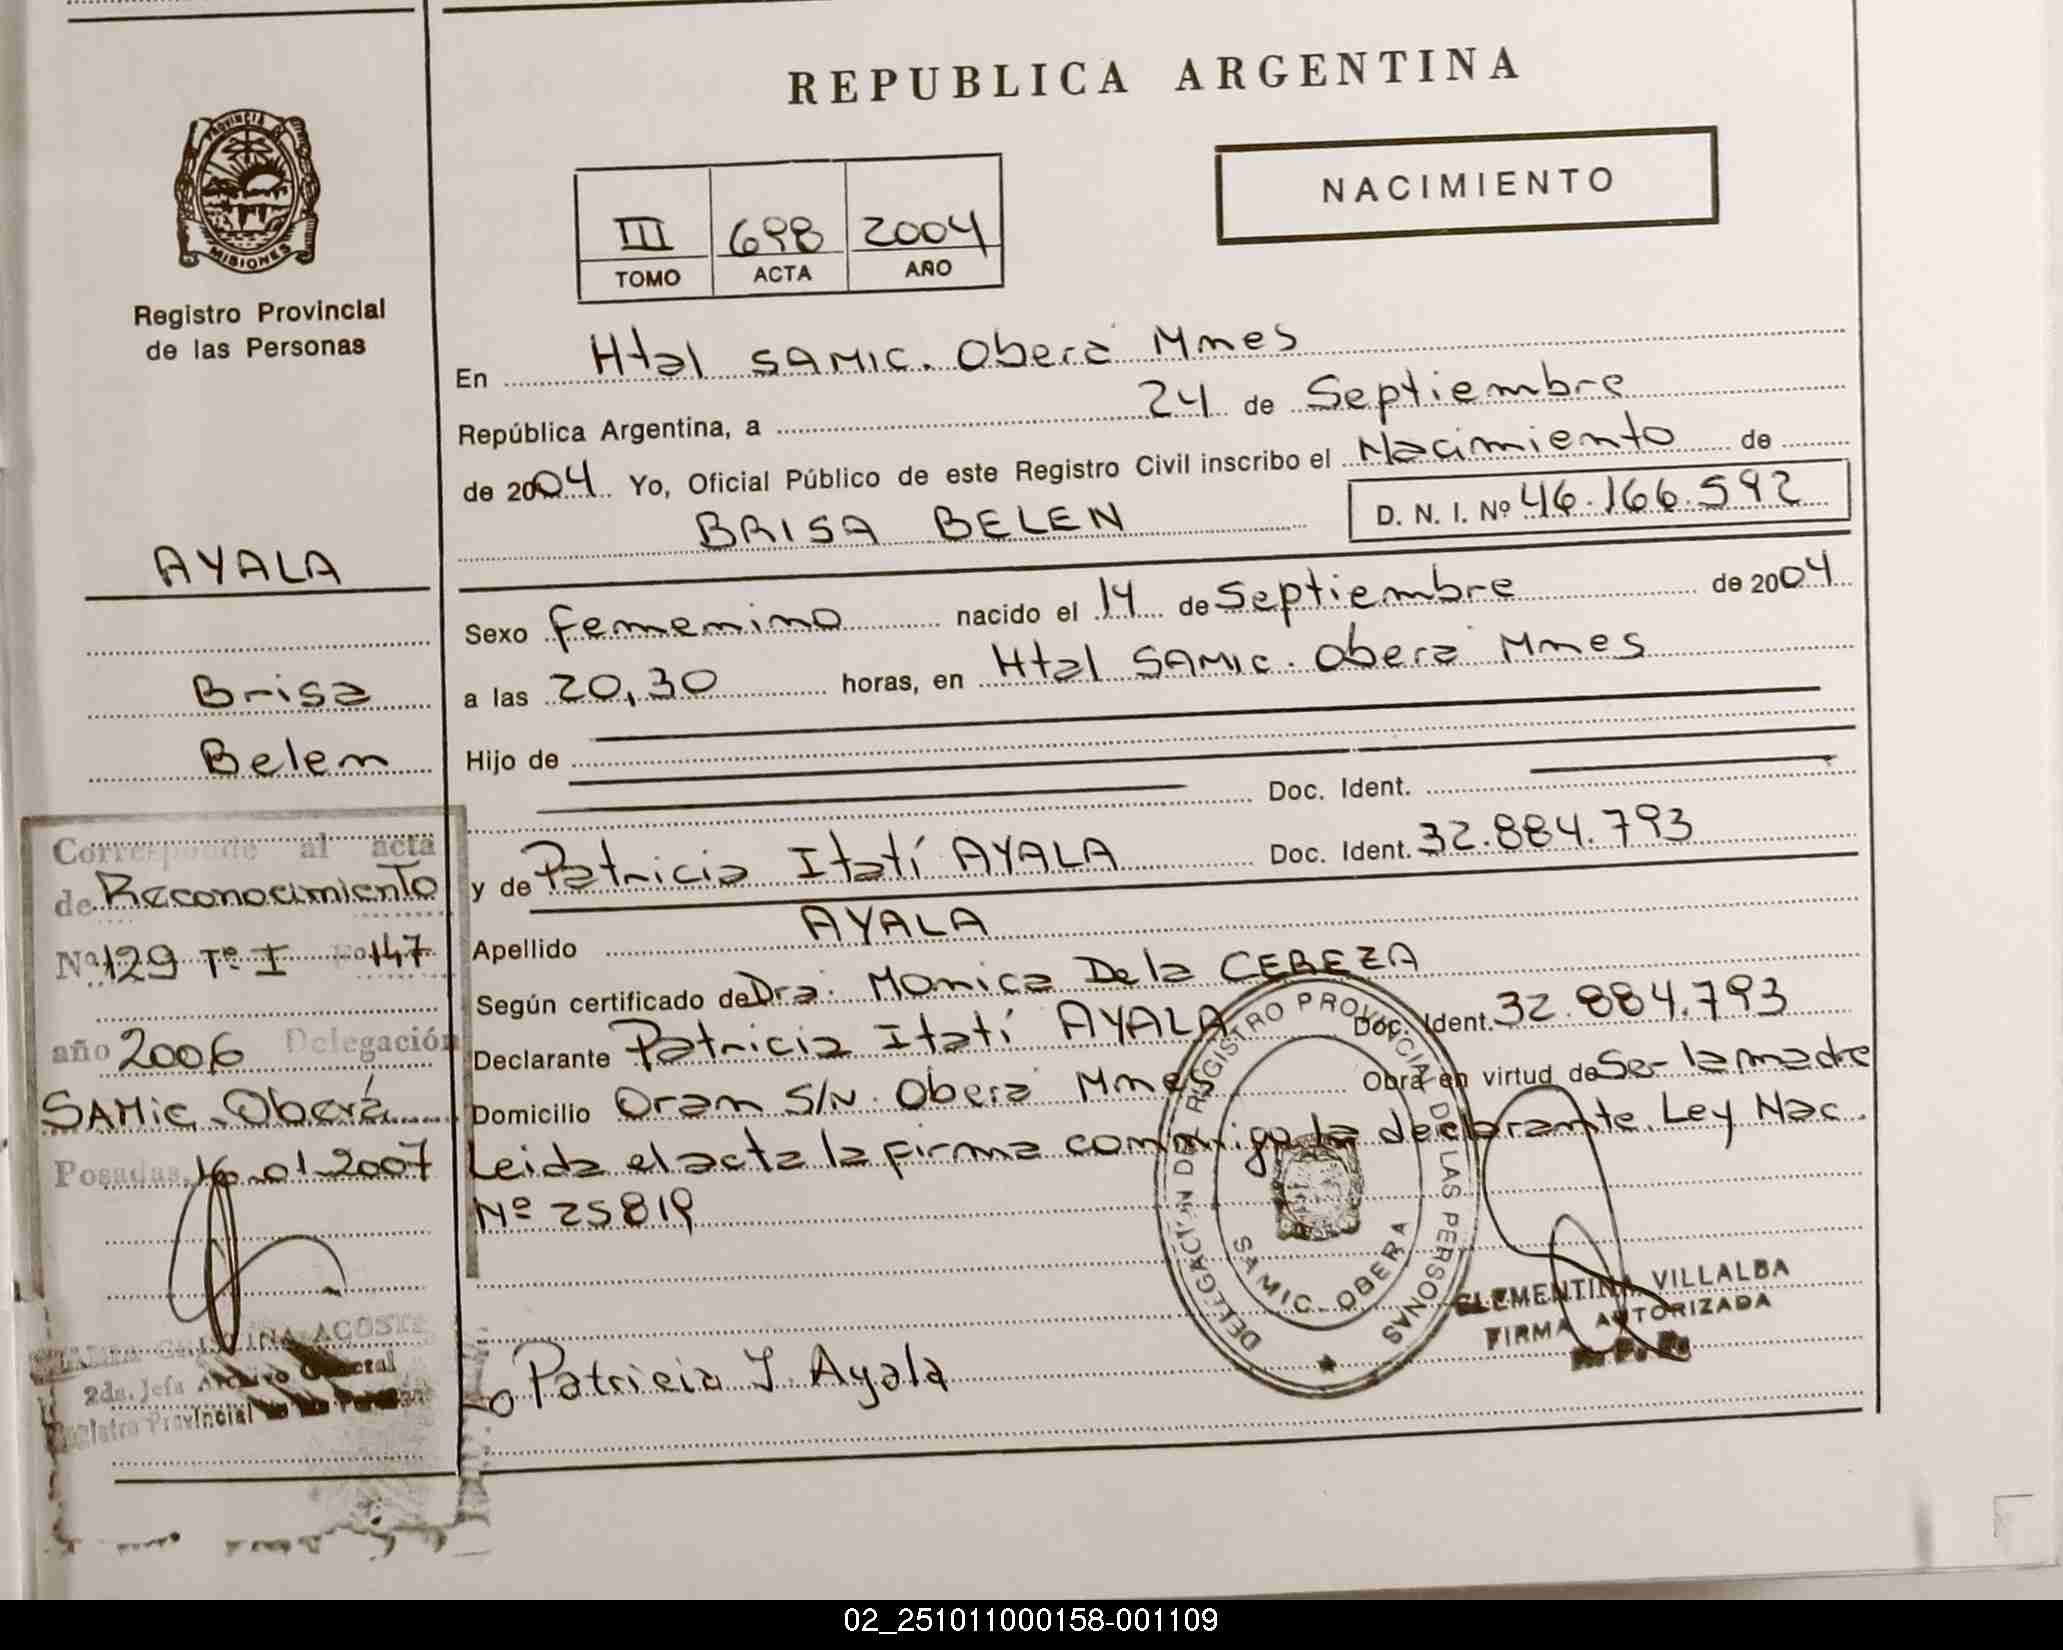 REPUBLICA ARGENTINA
NACIMIENTO
PROVINCIA D
MISIONES
Registro Provincial
de las Personas
III 698 2004
TOMO ACTA AÑO
En Htal SAMIC. Oberá Mnes
República Argentina, a 24 de Septiembre
de 2004 Yo, Oficial Público de este Registro Civil inscribo el Nacimiento de
BRISA BELEN D. N. I. Nº 46.166.592
AYALA
Brisa
Belen
Sexo femenino nacido el 14 de Septiembre de 2004
a las 20,30 horas, en Htal SAMIC. Oberá Mnes
Hijo de
Doc. Ident.
y de Patricia Itatí AYALA Doc. Ident. 32.884.793
Apellido AYALA
Según certificado de Dra. Monica De la CEREZA
Declarante Patricia Itatí AYALA Doc. Ident. 32.884.793
Domicilio Oram S/N. Oberá Mnes Obra en virtud de Ser la madre
Leida el acta la firma conmigo la declarante. Ley Nac.
Nº 25819
Corresponde al acta
de Reconocimiento
Nº 129 Tº I Fº 147
año 2006 Delegación
SAMIC. Oberá
Posadas, 16-01-2007
ACOSTA
2da. Jefa Archivo General
Registro Provincial de las Personas
DELEGACION DEL REGISTRO PROVINCIAL DE LAS PERSONAS
SAMIC - OBERA
CLEMENTINA VILLALBA
FIRMA AUTORIZADA
Patricia I. Ayala
02_251011000158-001109